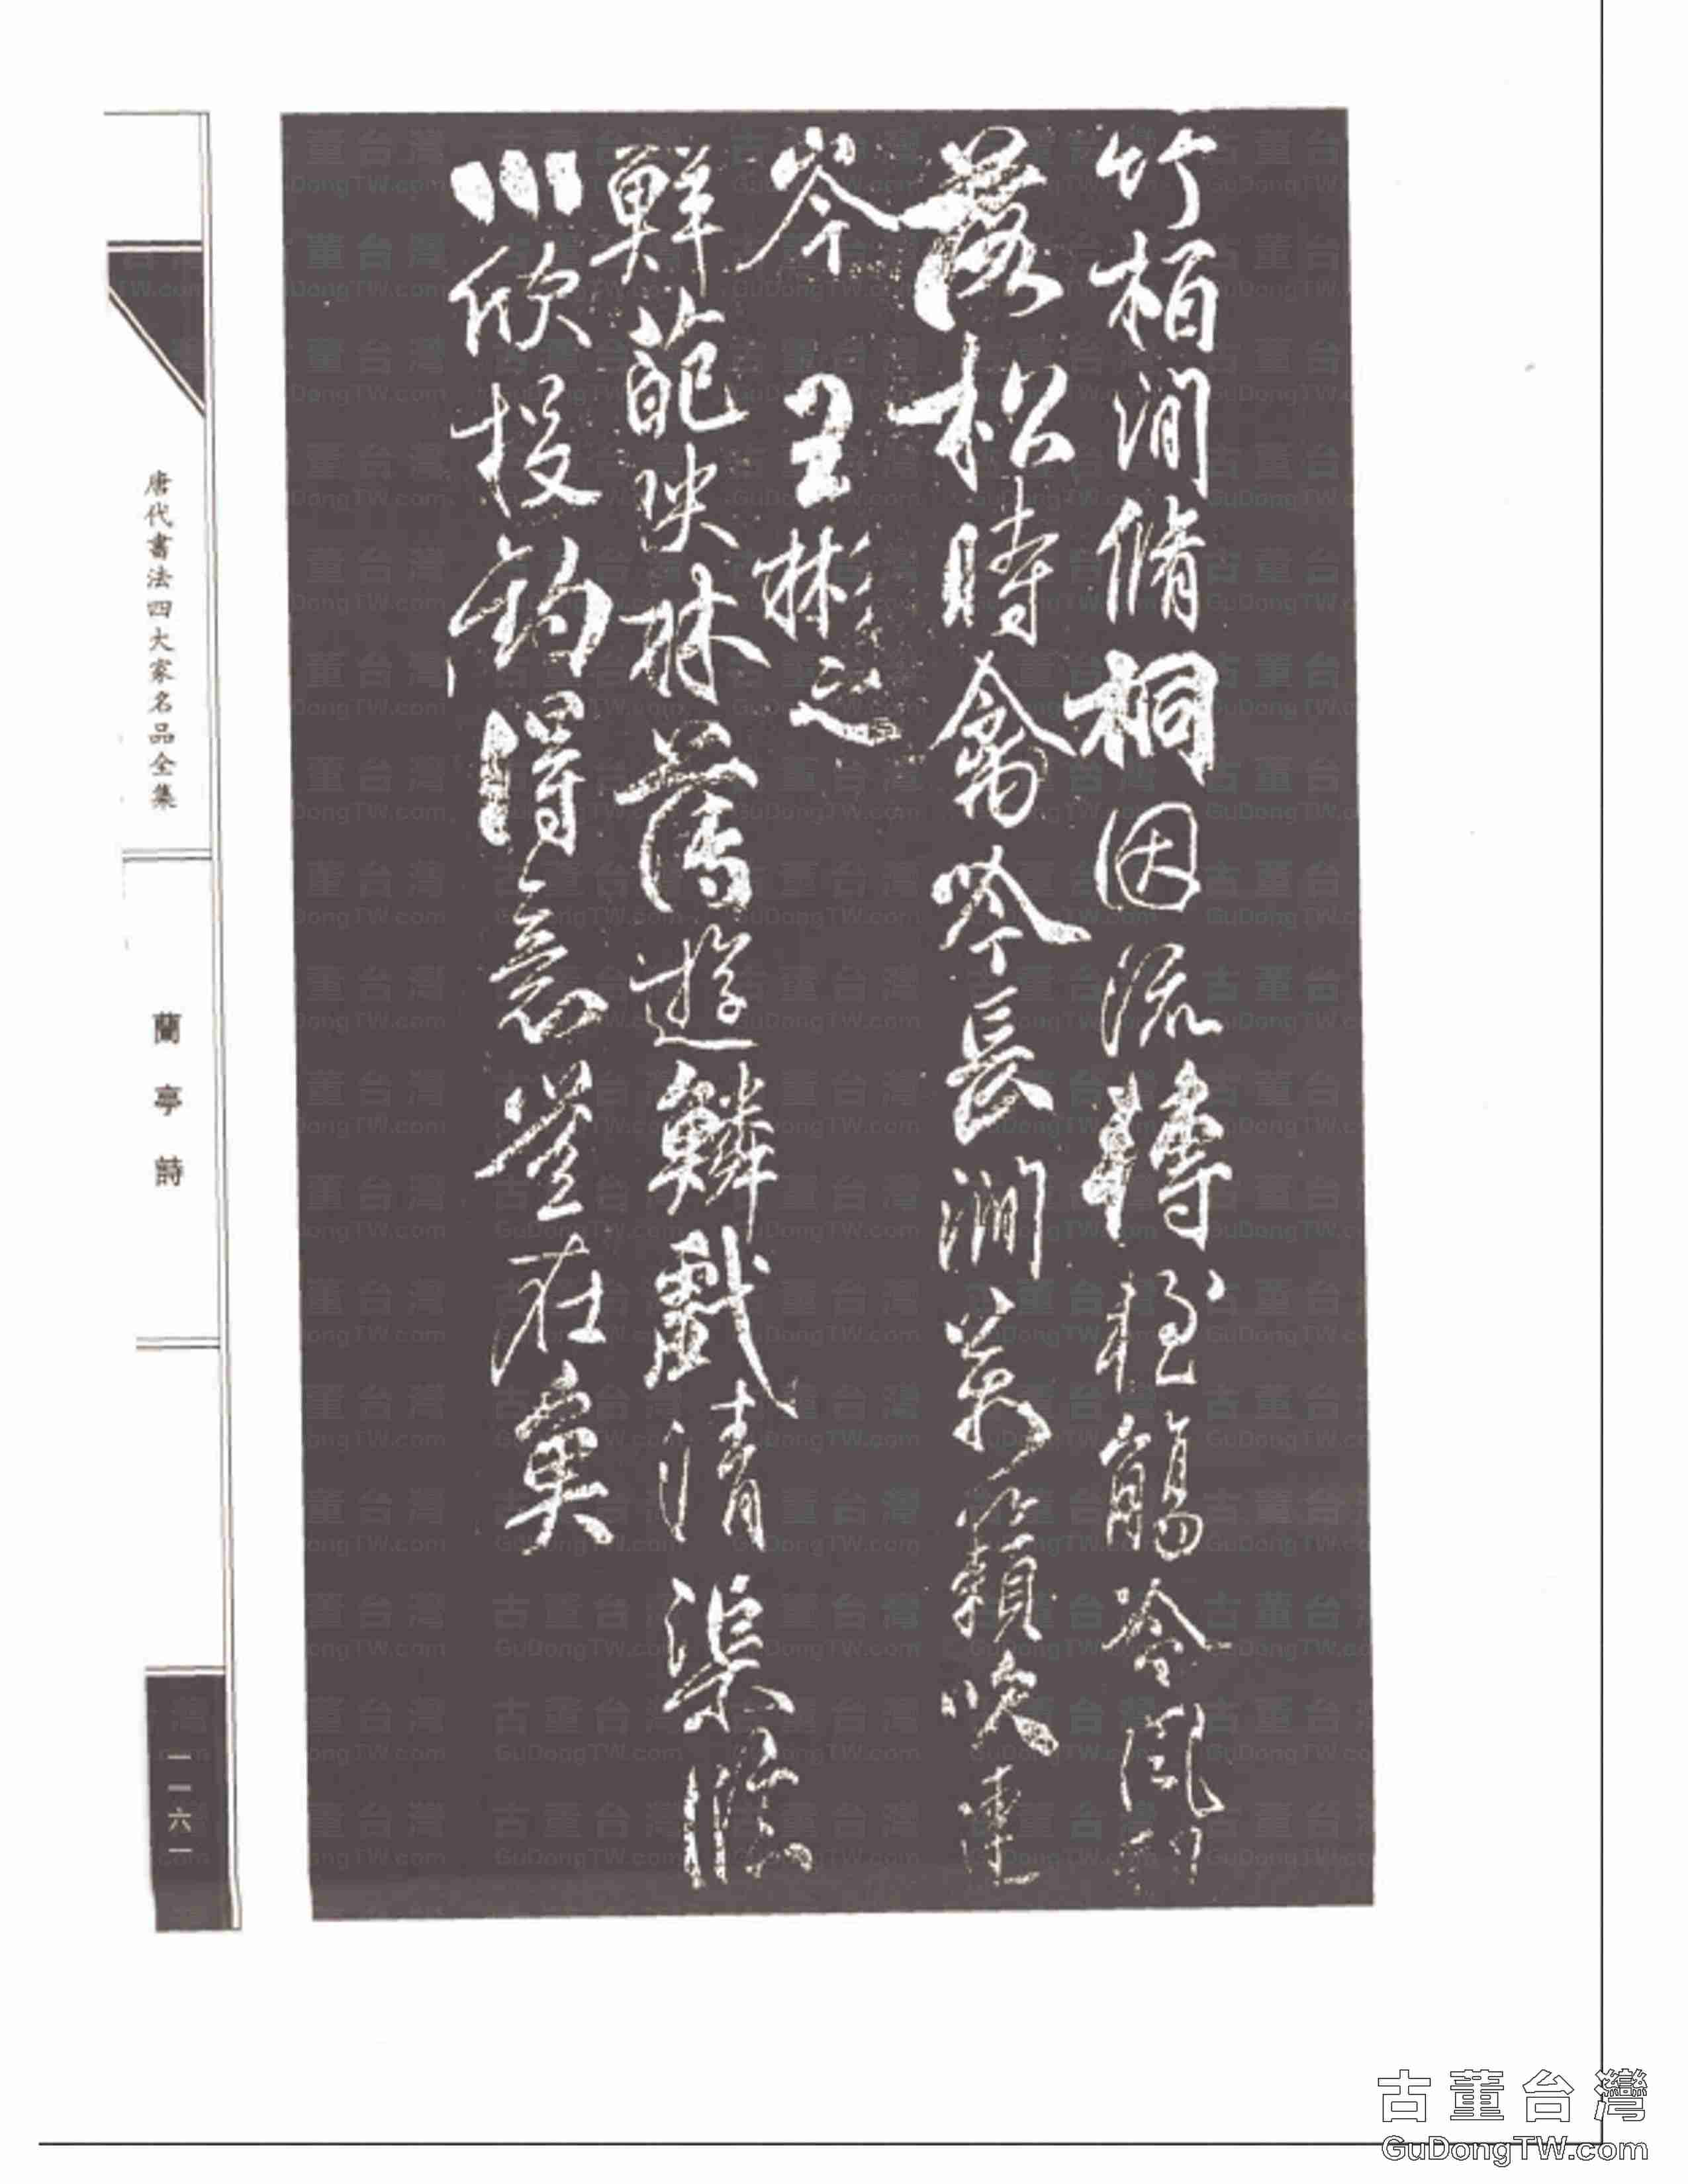 竹柏澗脩桐因流轉輕觴冷風飄
落松時禽吟長澗萬籟吹連
岑 王彬之
鮮葩映林薄遊鱗戲清渠臨
川欣投釣得意豈在魚
唐代書法四大家名品全集
蘭亭詩
一一六一
古董台灣
GuDongTW.com